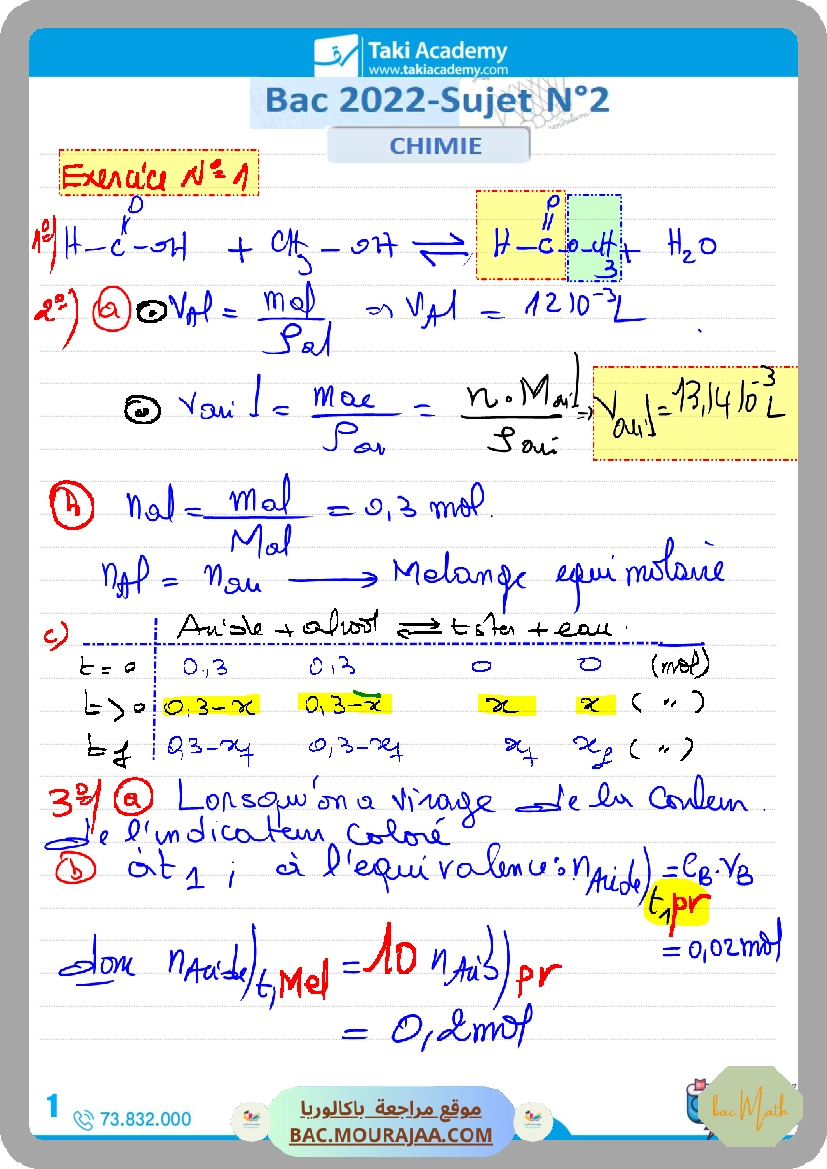 Taki Academy
www.takiacademy.com
Bac 2022-Sujet N°2
CHIMIE
Exercice N°1
1°/ H-C-OH + CH3-OH ⇌ H-C-O-CH3 + H2O
O O
2°/ a • VAl = mal/ρal ⇒ VAl = 12 10⁻³ L
• = mac/ρac = ⇒ = 13,14 10⁻³ L
b nal = mal/Mal = 0,3 mol.
nAl = nau → Melange equimolaire
c) Acide + alcool ⇌ Ester + eau.
t=0 0,3 0,3 0 0 (mol)
t>0 0,3-x 0,3-x x x (")
tf 0,3-xf 0,3-xf xf xf (")
3°/ a Lorsqu'on a virage de la couleur
de l'indicateur coloré
b à t1 ; à l'équivalence : nAcide) = CB.VB
t1 pr
= 0,02 mol
donc nAcide)t1 Mel = 10 nAcid)pr
= 0,2 mol
1
73.832.000
موقع مراجعة باكالوريا
BAC.MOURAJAA.COM
bac Math